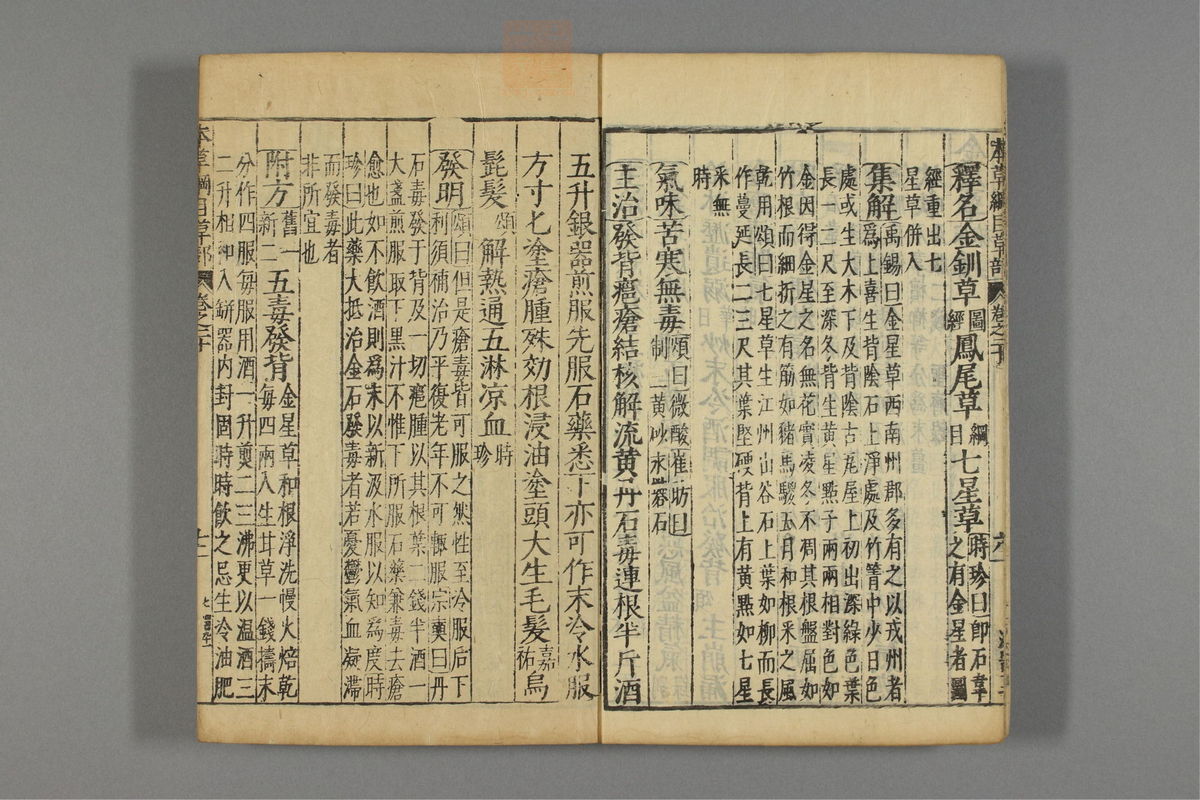 本草綱目草部 卷之二十
釋名金釧草圖經鳳尾草綱目七星草時珍曰即石韋之有金星者圖
經重出七
星草併入
集解禹錫曰金星草西南州郡多有之以戎州者
爲上喜生背陰石上淨處及竹箐中少日色
處或生大木下及背陰古屋上初出深綠色葉
長一二尺至深冬背生黄星點子兩兩相對色如
金因得金星之名無花實凌冬不凋其根盤屈如
竹根而細折之有筋如豬馬騣五月和根采之風
乾用頌曰七星草生江州山谷石上葉如柳而長
作蔓延長二三尺其葉堅硬背上有黄點如七星
采無
時
氣味苦寒無毒頌曰微酸崔昉曰制三黄砂汞礬石
主治發背癰瘡結核解流黄丹石毒連根半斤酒
五升銀器煎服先服石藥悉下亦可作末冷水服
方寸匕塗瘡腫殊効根浸油塗頭大生毛髮嘉祐烏
髭髮頌解熱通五淋凉血時珍
發明頌曰但是瘡毒皆可服之然性至冷服后下
利須補治乃平復老年不可輒服宗奭曰丹
石毒發于背及一切癰腫以其根葉二錢半酒一
大盞煎服取下黑汁不惟下所服石藥兼毒去瘡
愈也如不飲酒則爲末以新汲水服以知爲度時
珍曰此藥大抵治金石發毒者若憂鬱氣血凝滯
而發毒者
非所宜也
附方舊一新二五毒發背金星草和根淨洗慢火焙乾
每四兩入生甘草一錢擣末
分作四服每服用酒一升煎二三沸更以温酒三
二升相和入缾器内封固時時飲之忌生冷油肥
本草綱目草部 卷之二十